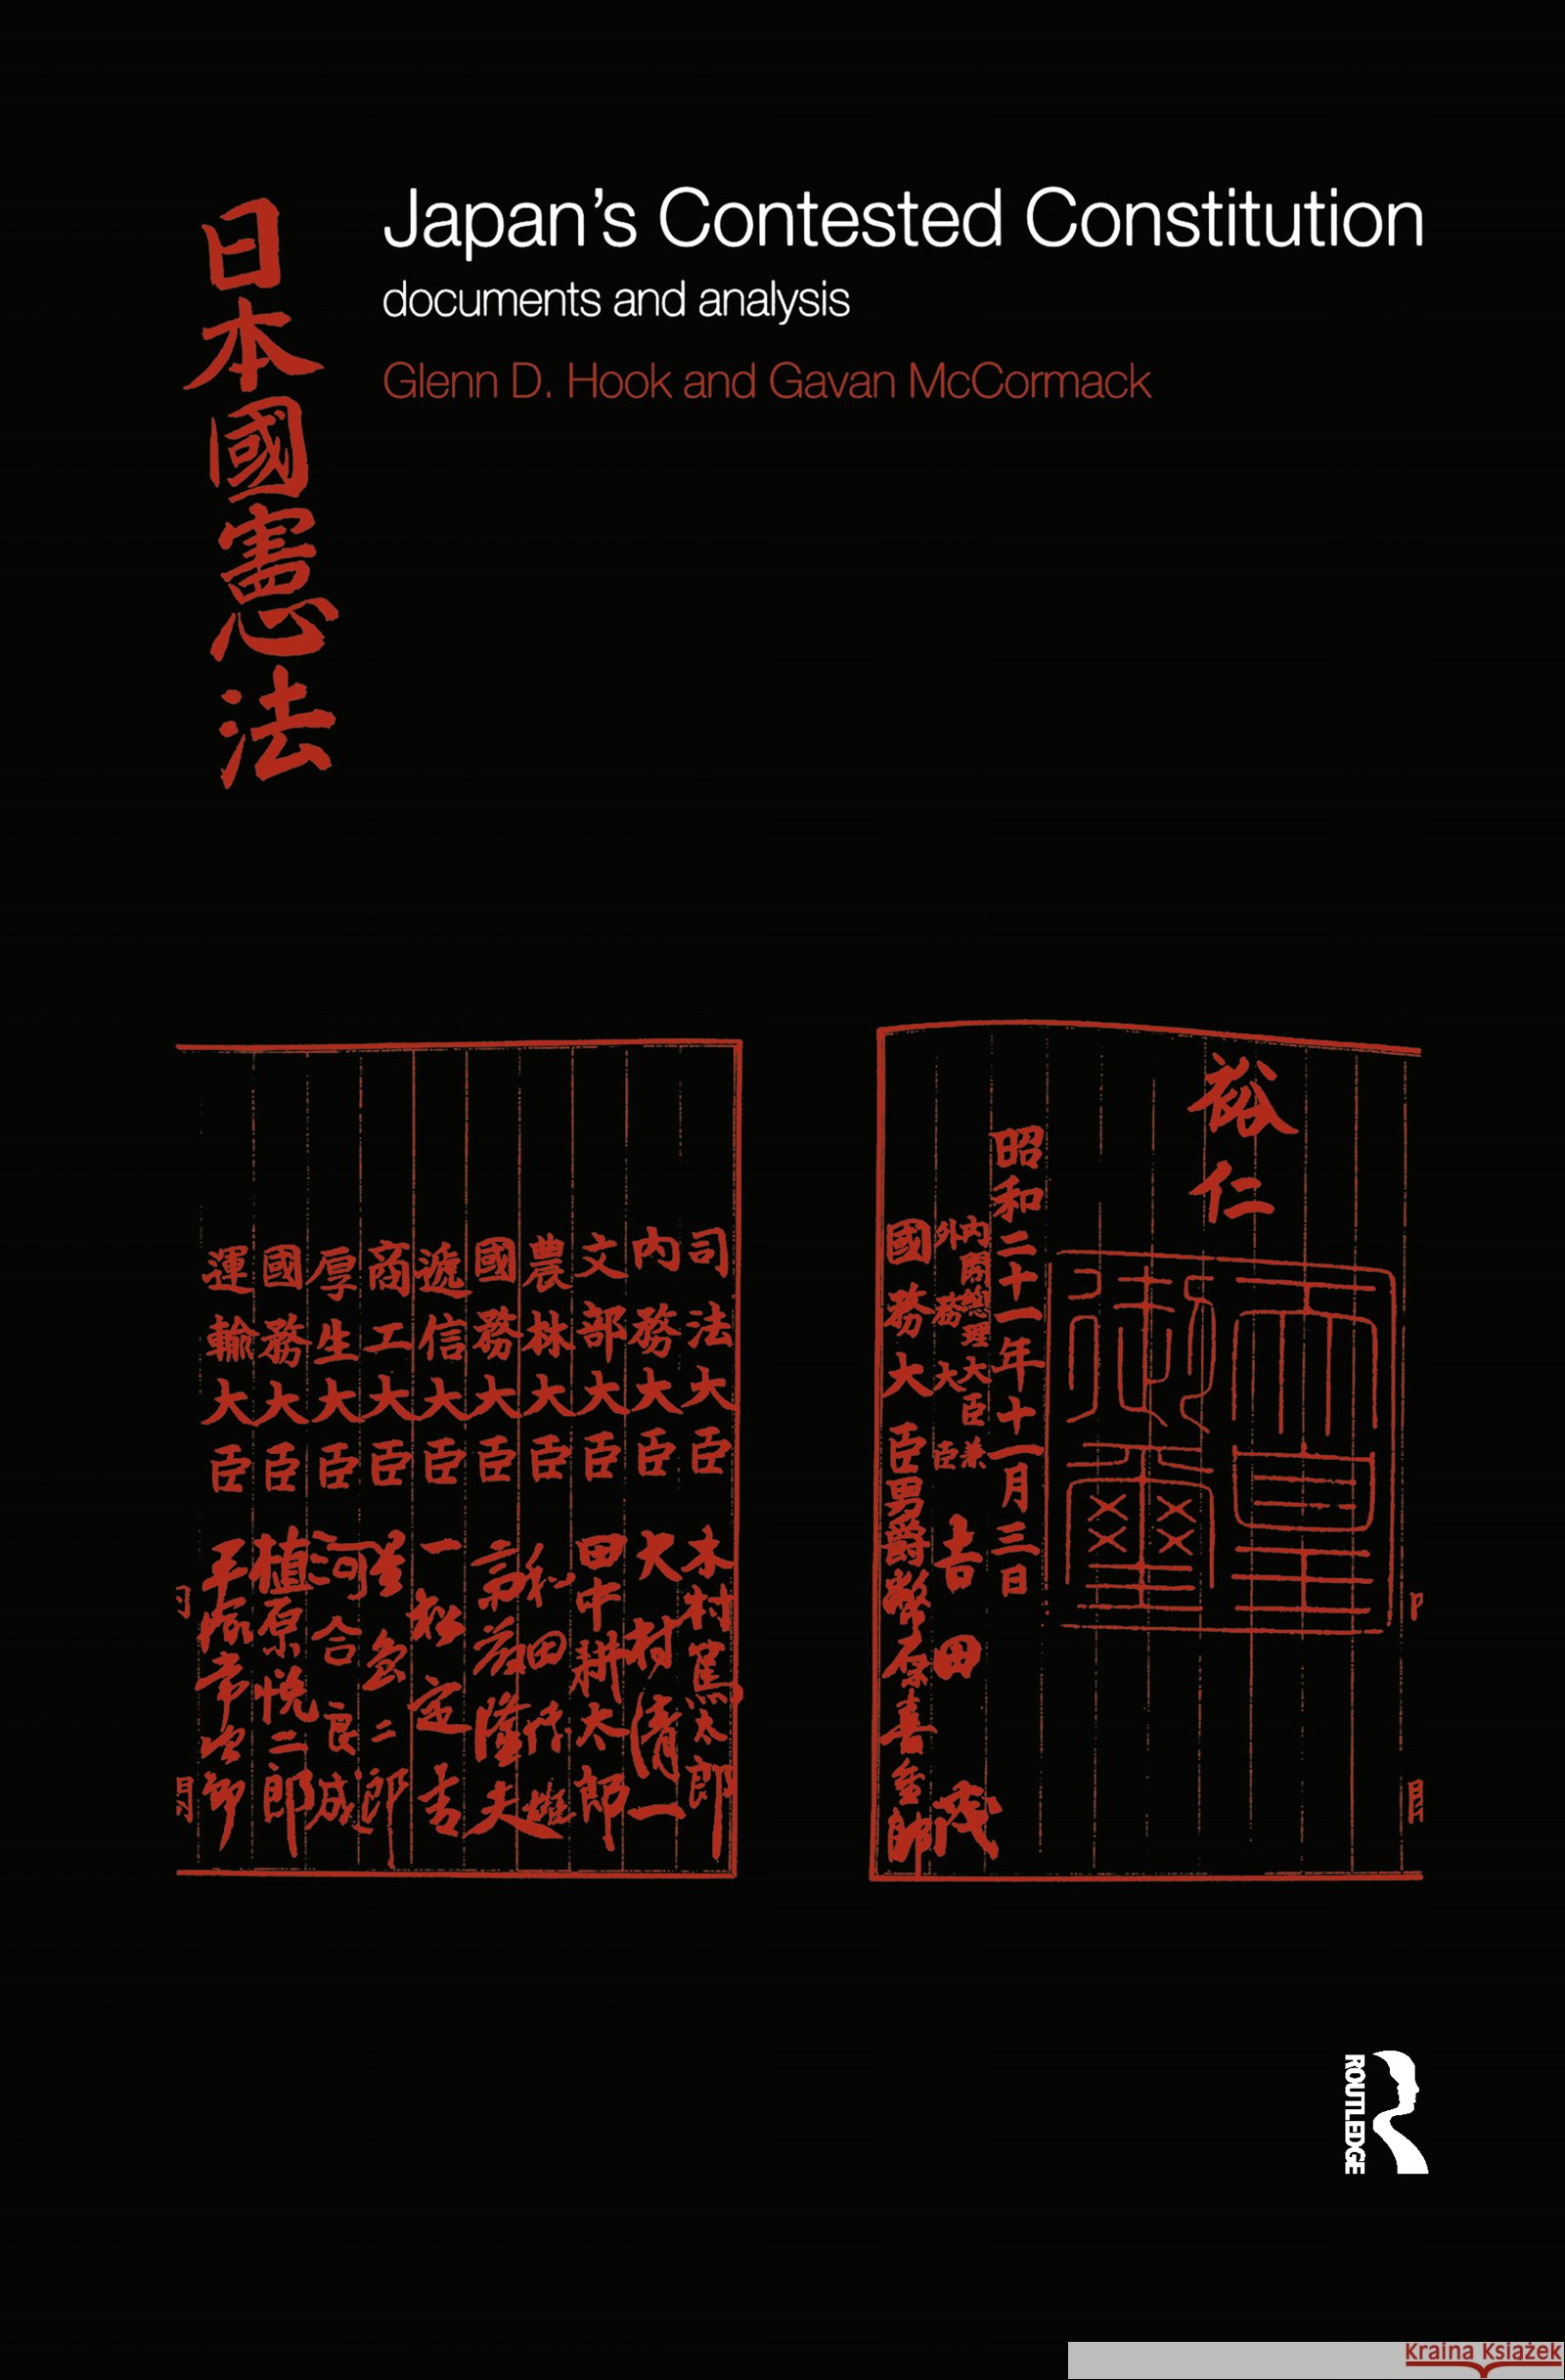 Japan's Contested Constitution
documents and analysis
Glenn D. Hook and Gavan McCormack
日本國憲法
裕仁
天皇御璽
昭和二十一年十一月三日
内閣總理大臣兼
外務大臣 吉田茂
國務大臣 男爵 幣原喜重郎
司法大臣 木村篤太郎
内務大臣 大村清一
文部大臣 田中耕太郎
農林大臣 和田博雄
國務大臣 斎藤隆夫
遞信大臣 一松定吉
商工大臣 星島二郎
厚生大臣 河合良成
國務大臣 植原悦二郎
運輸大臣 平塚常次郎
ROUTLEDGE
Kraina Książek